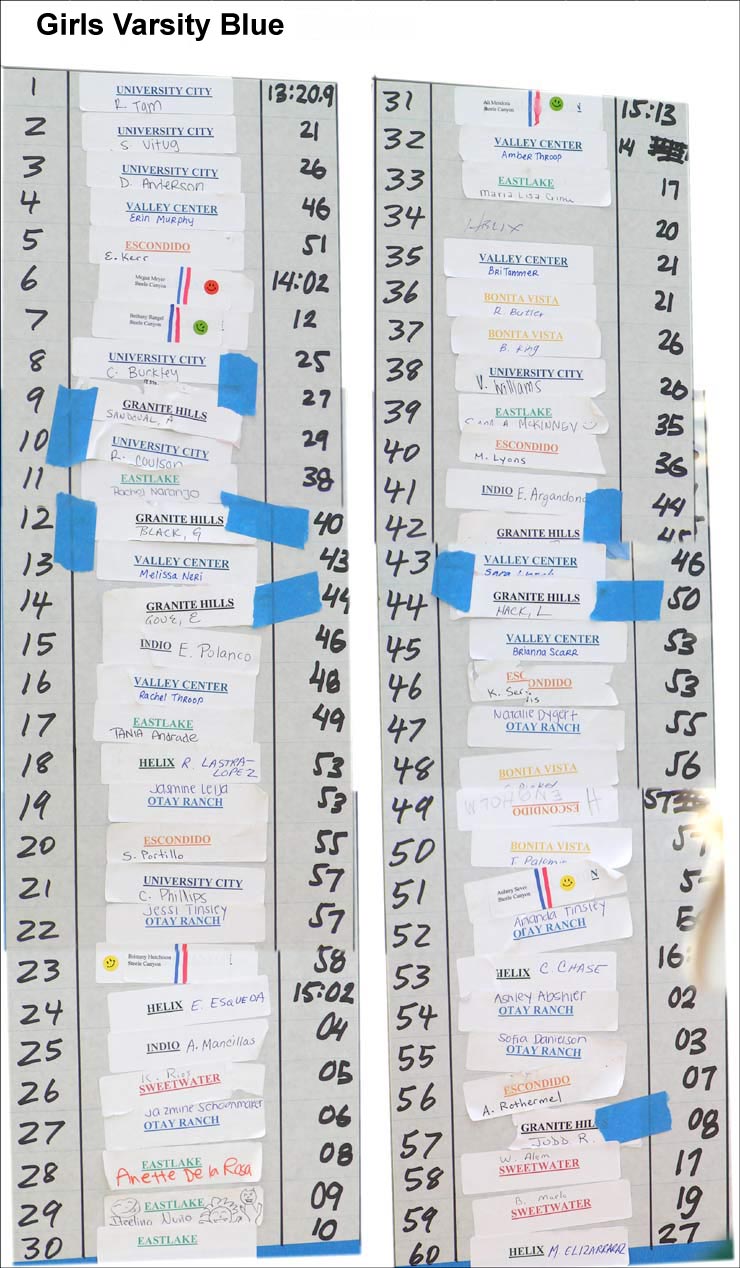 Girls Varsity Blue
1 UNIVERSITY CITY 13:20.9
R. Tam
2 UNIVERSITY CITY 21
S. Vitug
3 UNIVERSITY CITY 26
D. Anderson
4 VALLEY CENTER 46
Erin Murphy
5 ESCONDIDO 51
E. Kerr
6 Megan Meyer 14:02
Steele Canyon
7 Bethany Rangel 12
Steele Canyon
8 UNIVERSITY CITY 25
C. Buckley
9 GRANITE HILLS 27
SANDOVAL, A
10 UNIVERSITY CITY 29
R. Coulson
11 EASTLAKE 38
Rachel Naranjo
12 GRANITE HILLS 40
BLACK, G
13 VALLEY CENTER 43
Melissa Neri
14 GRANITE HILLS 44
GOVE, E
15 INDIO E. Polanco 46
16 VALLEY CENTER 48
Rachel Throop
17 EASTLAKE 49
TANIA Andrade
18 HELIX R. LASTRA- 53
LOPEZ
19 Jasmine Leija 53
OTAY RANCH
20 ESCONDIDO 55
S. Portillo
21 UNIVERSITY CITY 57
C. Phillips
22 Jessi Tinsley 57
OTAY RANCH
23 Brittany Hutchison 58
Steele Canyon
24 HELIX E. ESQUEDA 15:02
25 INDIO A. Mancillas 04
26 K. Rios 05
SWEETWATER
27 Jazmine Schoonmaker 06
OTAY RANCH
28 EASTLAKE 08
Anette De la Rosa
29 EASTLAKE 09
Nuño
30 EASTLAKE 10
31 Ali Mendoza 15:13
Steele Canyon
32 VALLEY CENTER 14
Amber Throop
33 EASTLAKE 17
Maria Lisa
34 HELIX 20
35 VALLEY CENTER 21
Bri Tammer
36 BONITA VISTA 21
R. Butler
37 BONITA VISTA 26
B. King
38 UNIVERSITY CITY 26
V. Williams
39 EASTLAKE 35
MCKINNEY
40 ESCONDIDO 36
M. Lyons
41 INDIO E. Argandona 44
42 GRANITE HILLS
43 VALLEY CENTER 46
Sara
44 GRANITE HILLS 50
HACK, L
45 VALLEY CENTER 53
Brianna Scarr
46 ESCONDIDO 53
K.
47 Natalie Dygert 55
OTAY RANCH
48 BONITA VISTA 56
49 ESCONDIDO 57
50 BONITA VISTA
51 Steele Canyon
52 Amanda Tinsley
OTAY RANCH
53 HELIX C. CHASE 16:
54 Ashley Abshier 02
OTAY RANCH
55 Sofia Danielson 03
OTAY RANCH
56 ESCONDIDO 07
A. Rothermel
57 GRANITE HILL 08
JUDD R.
58 W. Alem 17
SWEETWATER
59 B. 19
SWEETWATER
60 HELIX M. 27